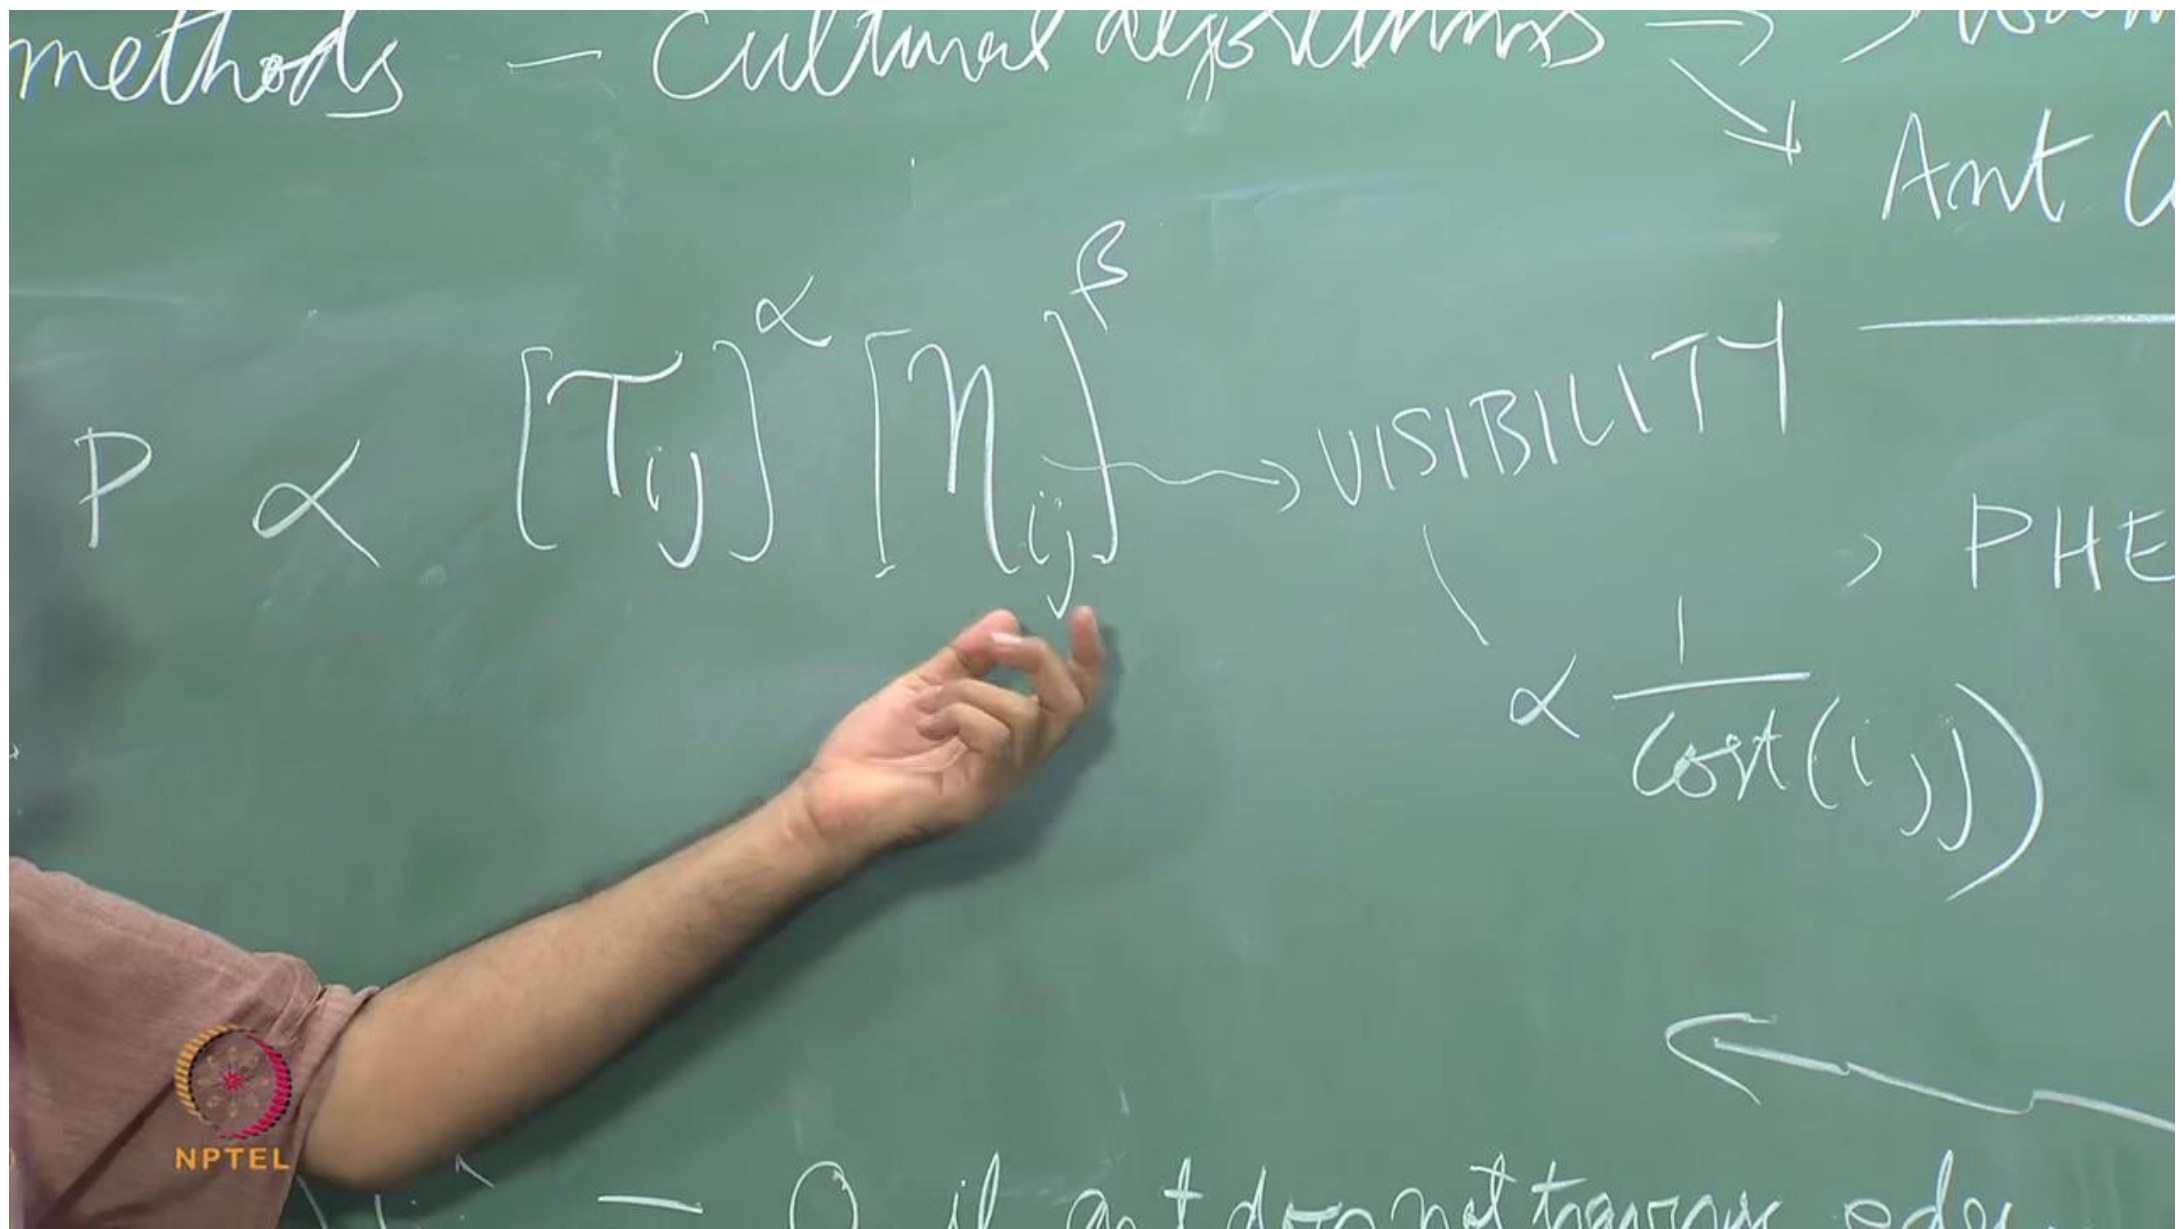 methods — Cultural algorithms →
Ant
P ∝ [τij]^α [ηij]^β → VISIBILITY
PHE
∝ 1/Cost(i,j)
0 if ant does not traverse edge
NPTEL